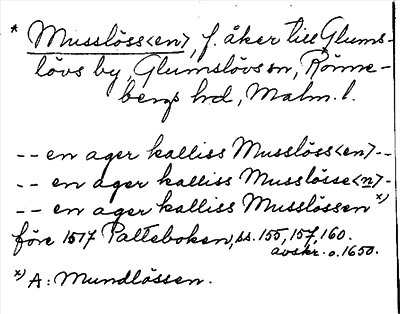 * Musslöss<en>, f. åker till Glums-
lövs by, Glumslövs sn, Rönne-
bergs hd, Malm. l.
-- en ager kalliss Musslöss<en>--
-- en ager kalliss Musslösse<n>-
-- en ager kalliss Musslössen x)
före 1517 Palteboken, ss. 155, 157, 160.
avskr. o. 1650.
x) A: Mundlössen.